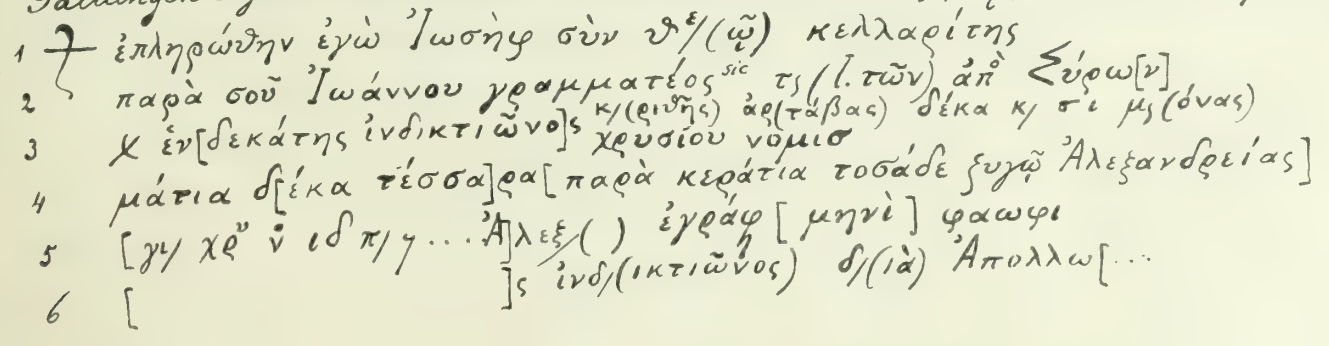 1 ἐπληρώθην ἐγὼ Ἰωσὴφ σὺν θε/(ῷ) κελλαρίτης
2 παρὰ σοῦ Ἰωάννου γραμματέος sic τς/(l. τῶν) ἀπὸ Σύρω[ν]
κ/(ριθῆς) ἀρ(τάβας) δέκα κ/ σι μς(όνας)
3 χ ἑν[δεκάτης ἰνδικτιῶνο]ς χρυσίου νομισ
4 μάτια δ[έκα τέσσα]ρα[ παρὰ κεράτια τοσάδε ζυγῷ Ἀλεξανδρείας]
5 [γι/ χρυ ν ιδ π/ η ... Ἀ]λεξ/( ) ἐγράφη [ μηνὶ ] φαωφι
6 [ ]ς ἰνδ/(ικτιῶνος) δ/(ιὰ) Ἀπολλω[...